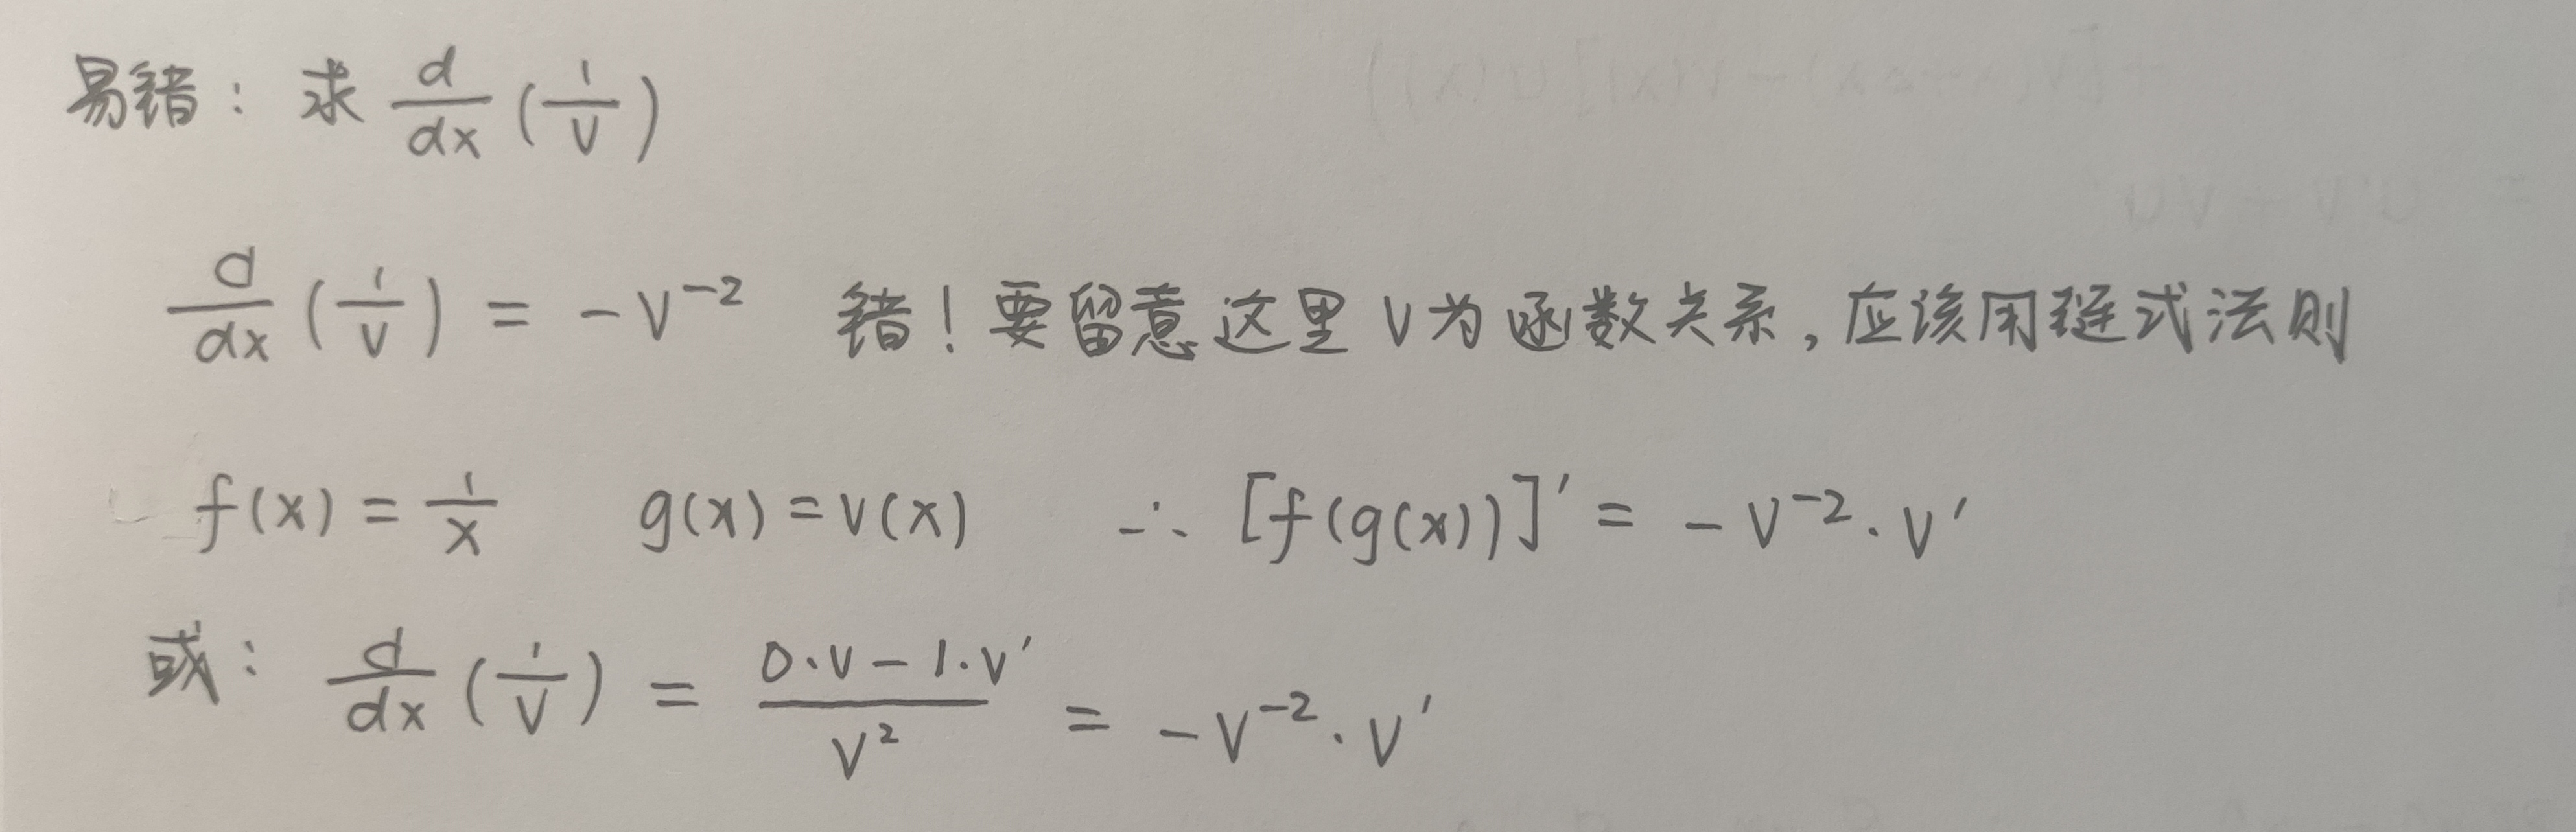 易错：求 d/dx (1/v)
d/dx (1/v) = -v⁻² 错！要留意这里 v 为函数关系，应该用链式法则
f(x) = 1/x g(x) = v(x) ∴ [f(g(x))]′ = -v⁻² · v′
或：d/dx (1/v) = (0·v - 1·v′)/v² = -v⁻² · v′